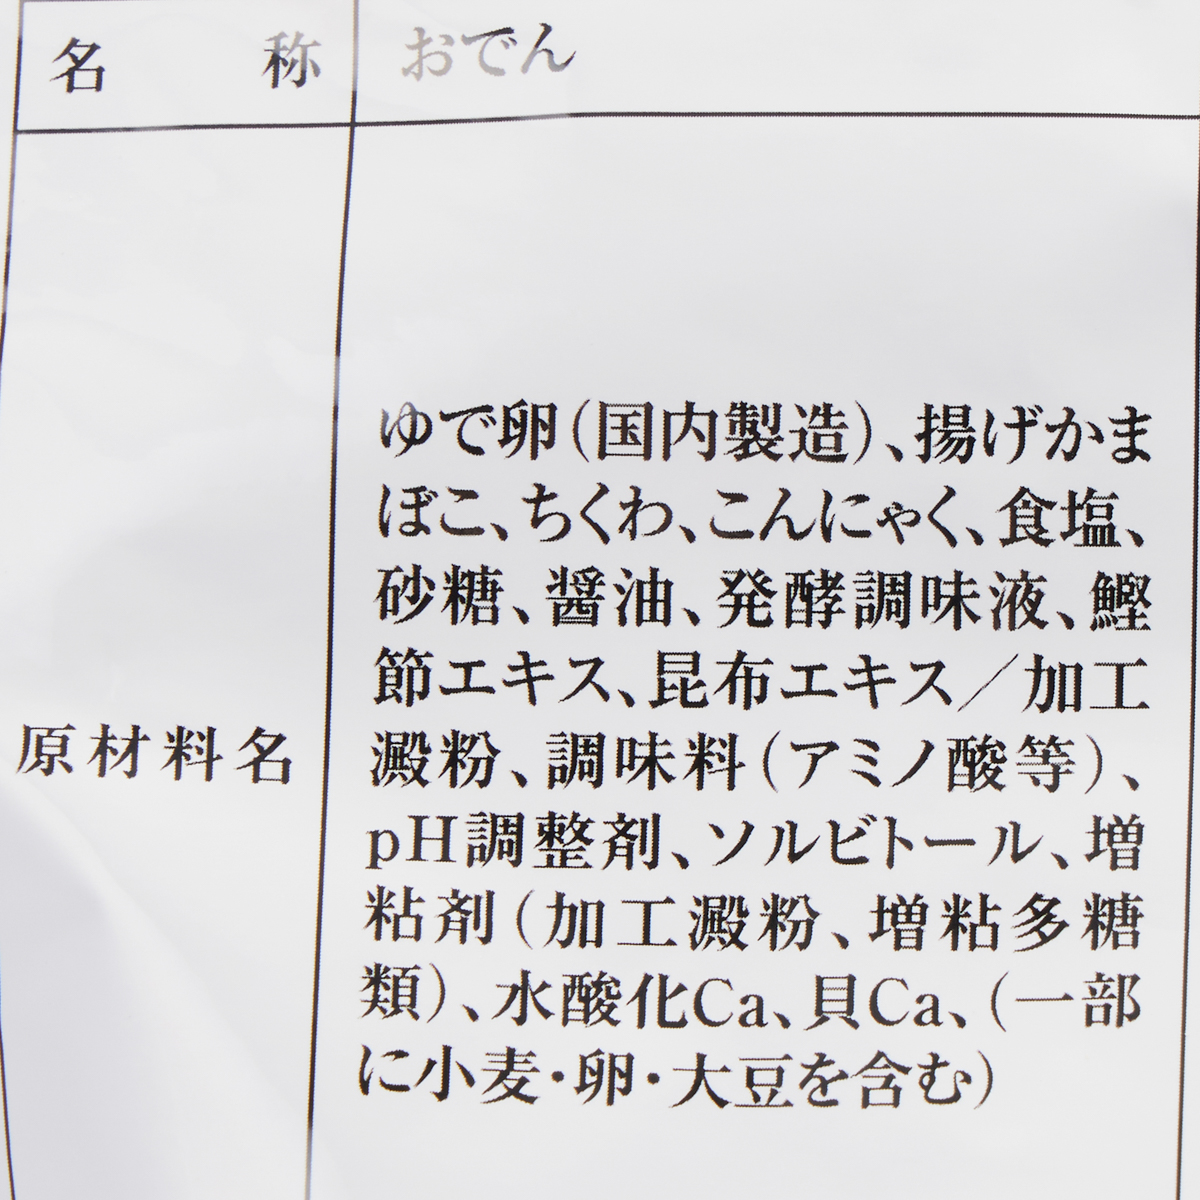 名称 おでん
原材料名
ゆで卵(国内製造)、揚げかま
ぼこ、ちくわ、こんにゃく、食塩、
砂糖、醤油、発酵調味液、鰹
節エキス、昆布エキス/加工
澱粉、調味料(アミノ酸等)、
pH調整剤、ソルビトール、増
粘剤(加工澱粉、増粘多糖
類)、水酸化Ca、貝Ca、(一部
に小麦・卵・大豆を含む)